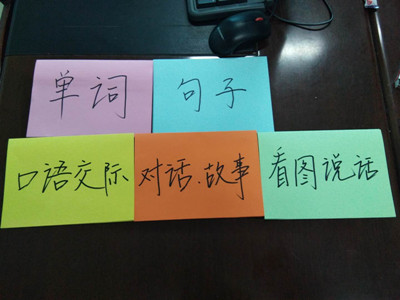 单词
句子
口语交际
对话.故事
看图说话